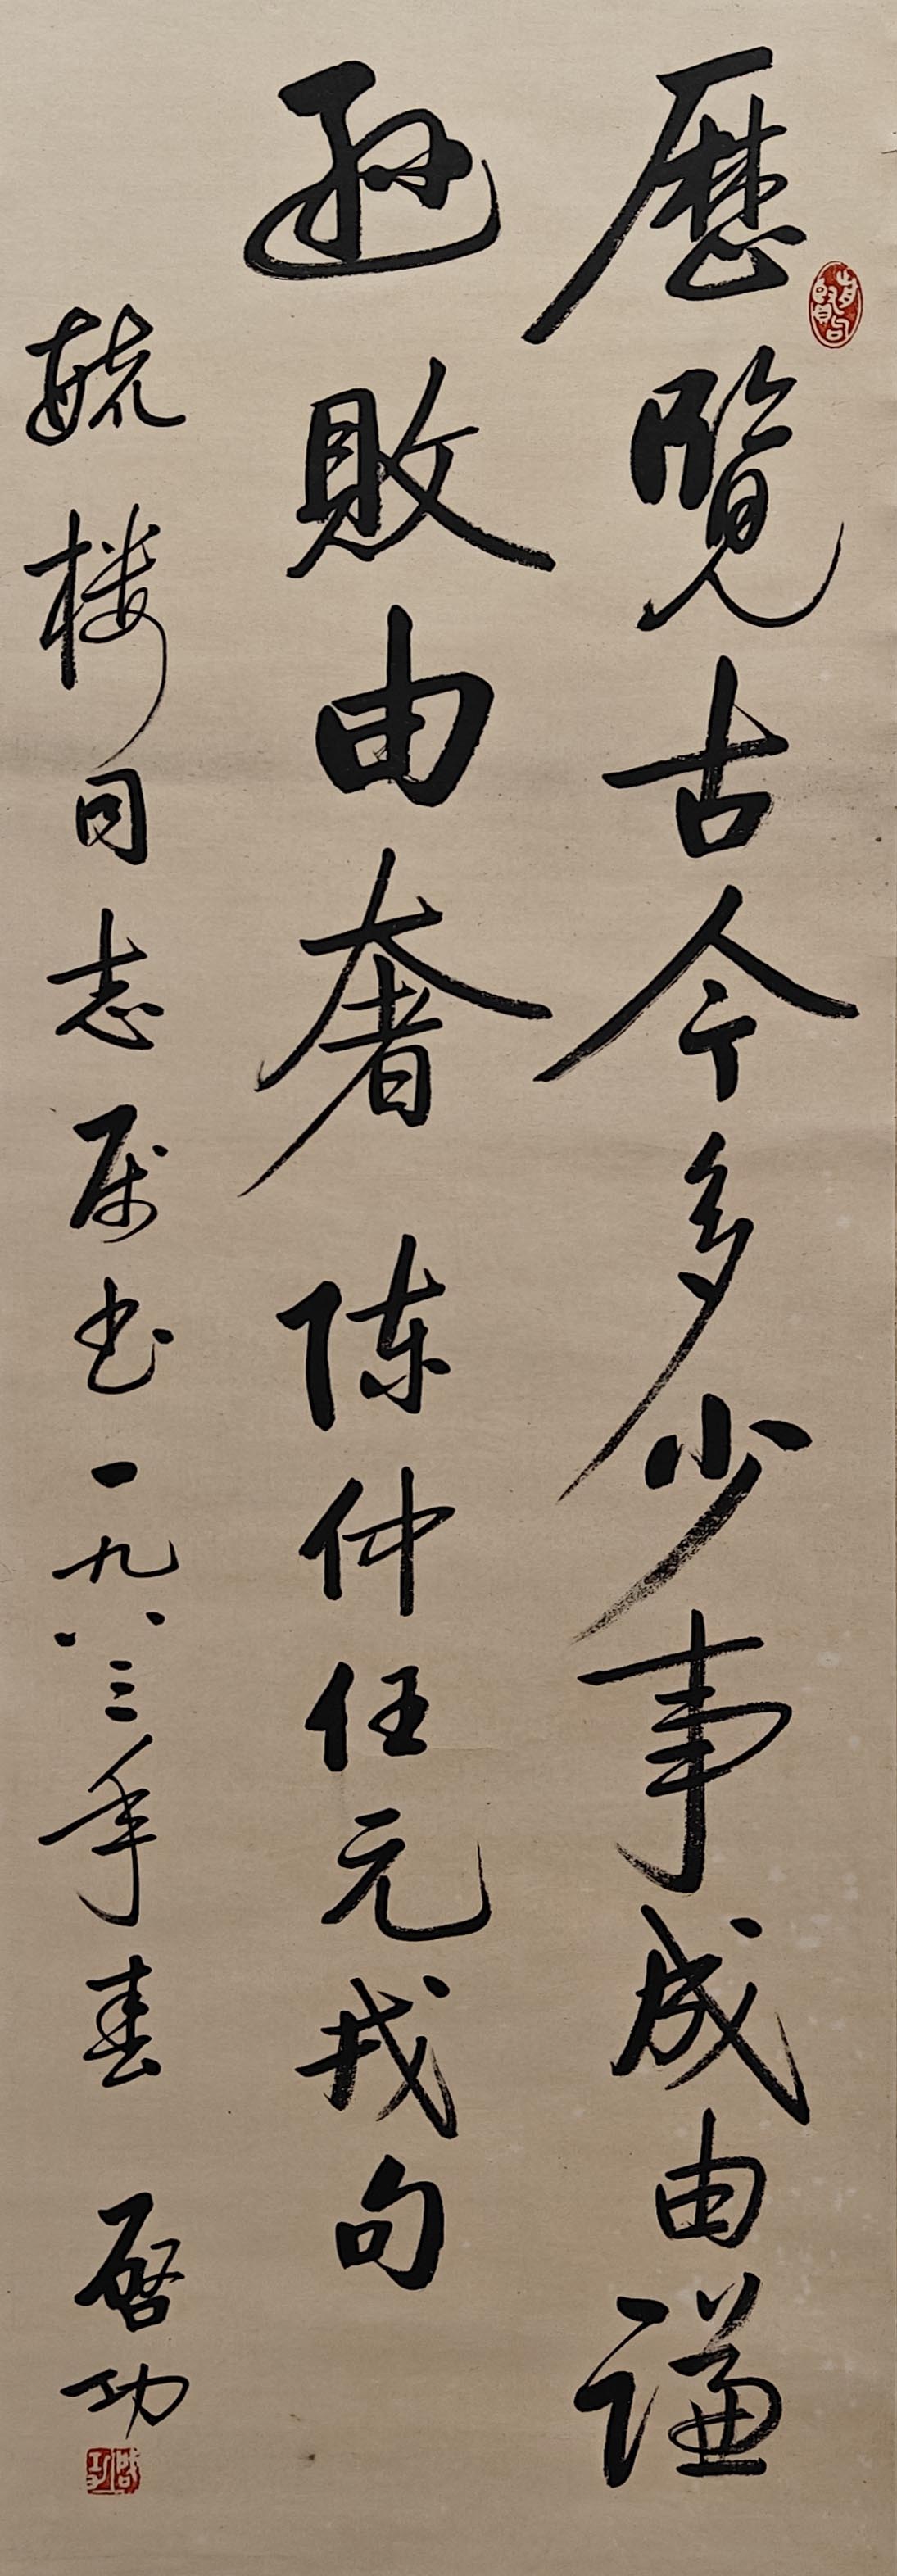 歷覽古今多少事成由謙
遜敗由奢 陳仲任元戎句
毓楼同志属书 一九八三年春 启功
启功